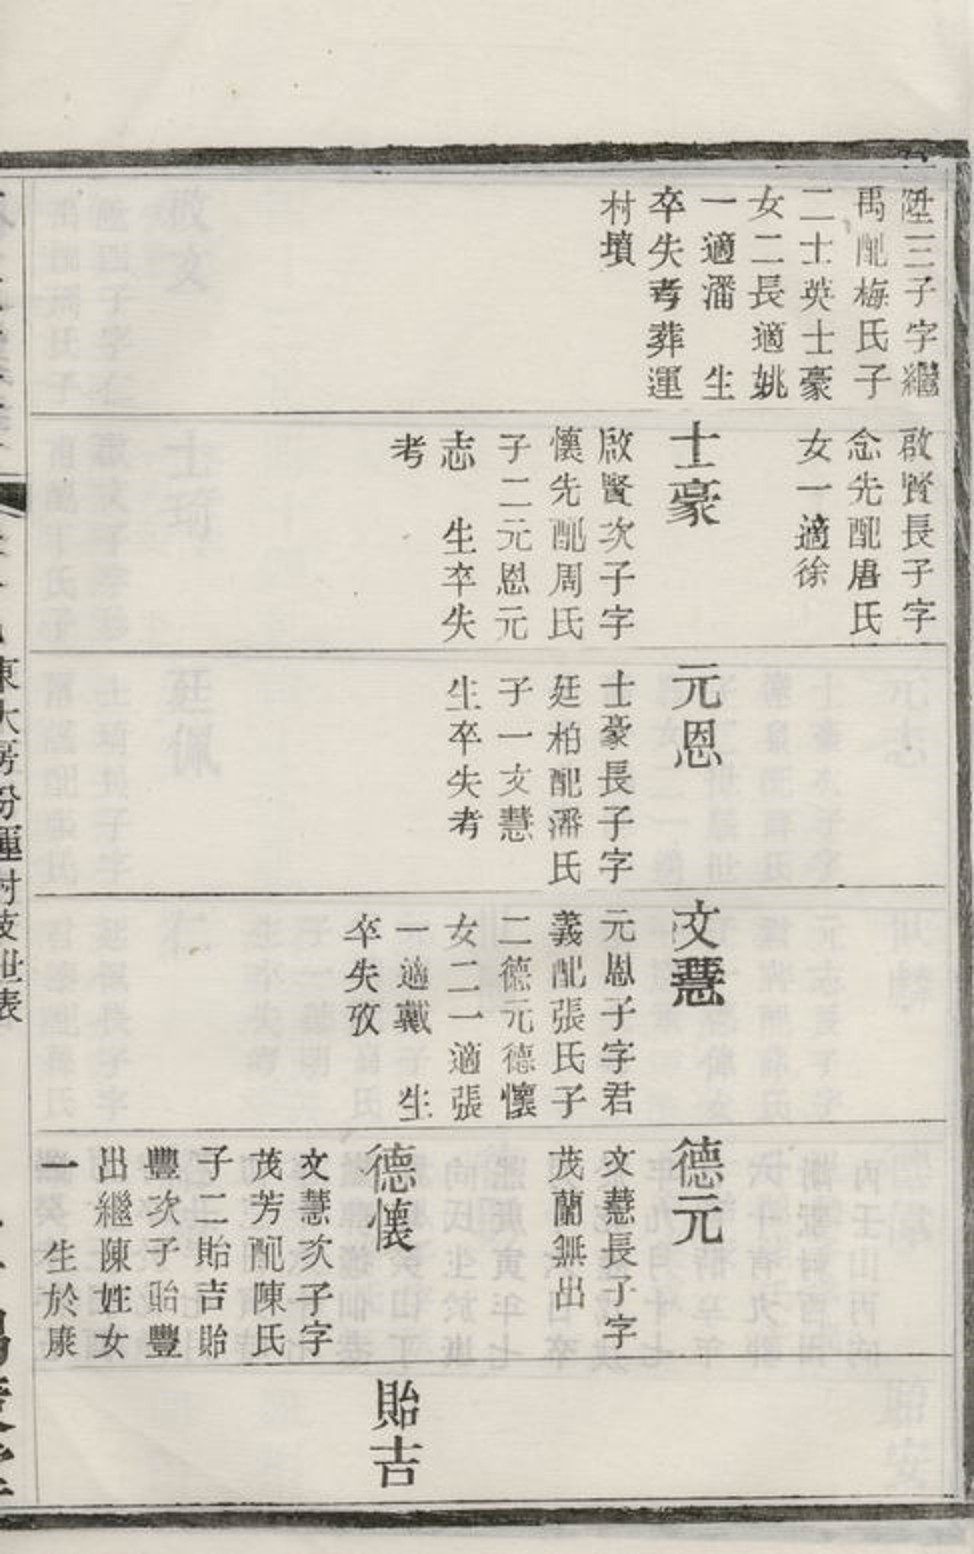 陞三子字繼
禹配梅氏子
二士英士豪
女二長適姚
一適潘　生
卒失考葬運
村墳
啟賢長子字
念先配唐氏
女一適徐
士豪
啟賢次子字
懷先配周氏
子二元恩元
志　生卒失
考
元恩
士豪長子字
廷柏配潘氏
子一文慧
生卒失考
文慧
元恩子字君
義配張氏子
二德元德懷
女二一適張
一適戴　生
卒失攷
德元
文慧長子字
茂蘭無出
德懷
文慧次子字
茂芳配陳氏
子二貽吉貽
豐次子貽豐
出繼陳姓女
一　生於康
貽吉
東大房份運村荽世表